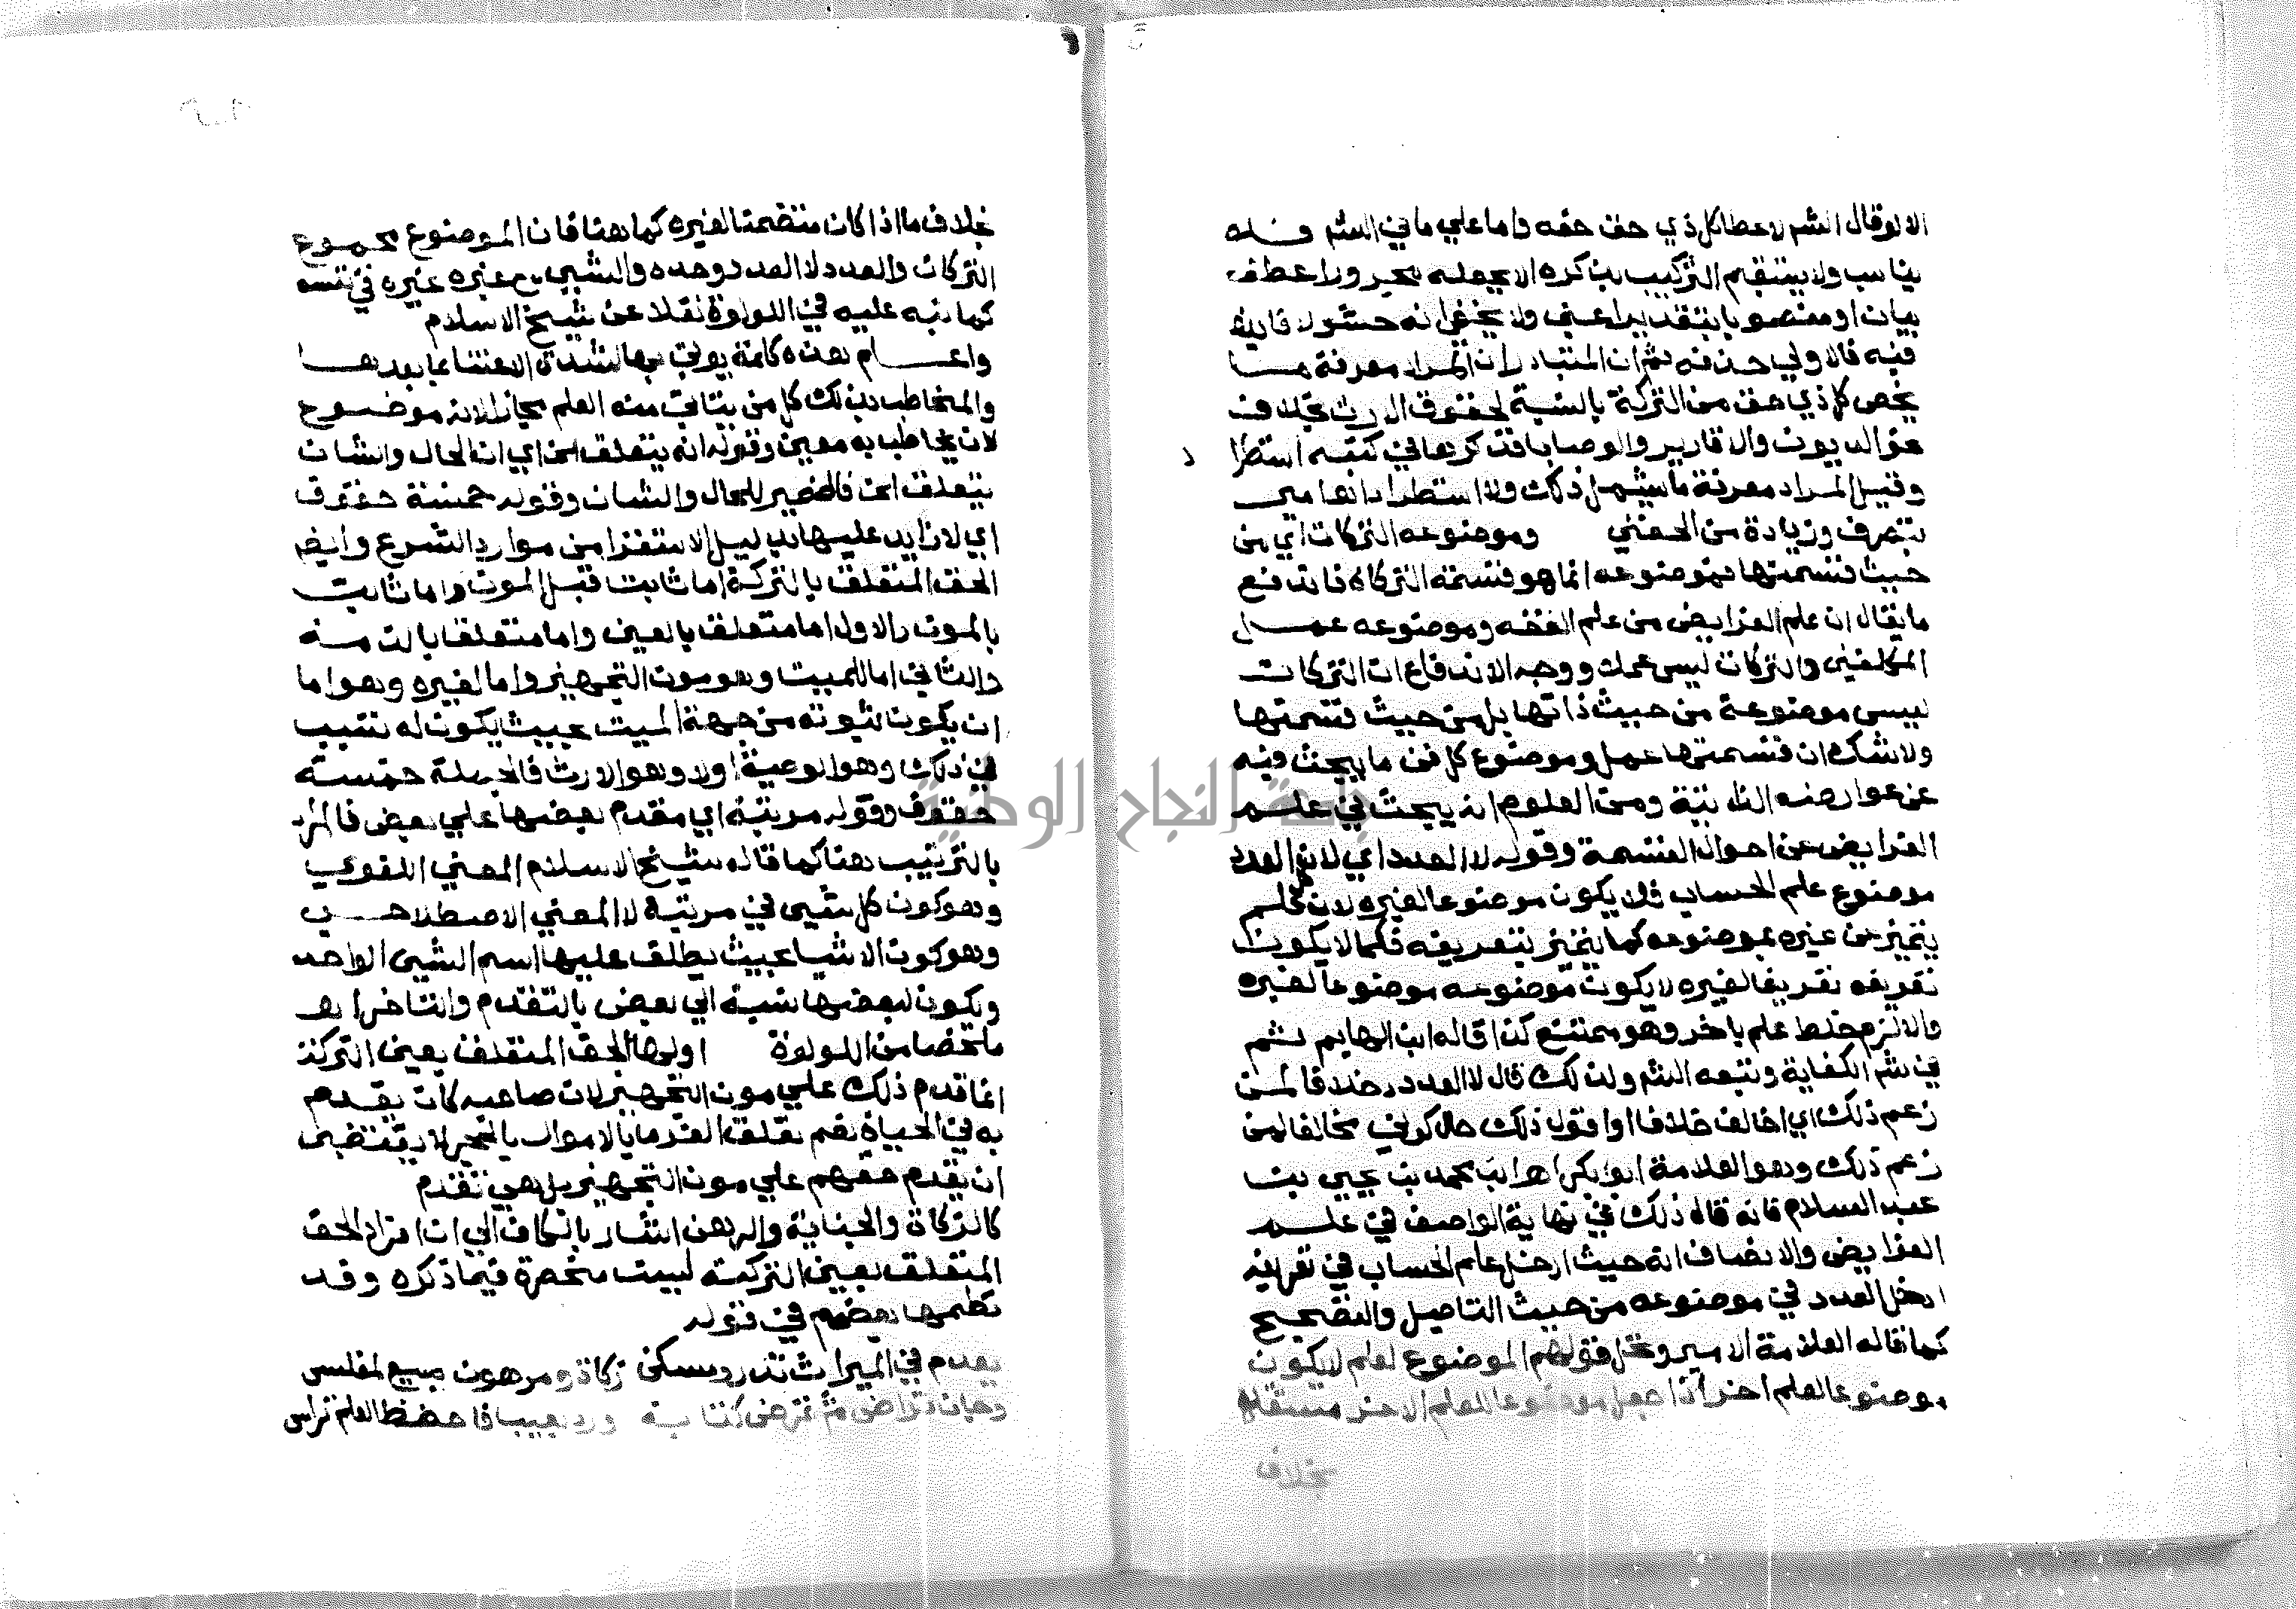 الا لو قال الشم لاعطا كل ذي حق حقه واما علي ما في الشم فله
يناسب ولا يستقيم التركيب بذكره الا بجعله مجرورا عطف
بيان او منصوبا بتقدير اعني ولا يخفي انه حشو لا فايدة
فيه فالاولي حذفه ثم ان المتبادر ان المراد معرفة ما
يخص كل ذي حق من التركة بالنسبة لحقوق الارث بخلاف
نحو الديون والاقارير والوصايا فذكرها في كتبه استطرا
د
وقيل المراد معرفة ما يشمل ذلك ولا استطراد انتهى
بتصرف وزيادة من الحفني وموضوعه التركات اي من
حيث قسمتها فموضوعه انما هو قسمة التركات فاندفع
ما يقال ان علم الفرايض من علم الفقه وموضوعه عمل
المكلفين والتركات ليس عملا ووجه الاندفاع ان التركات
ليس موضوعة من حيث ذاتها بل من حيث قسمتها
ولا شك ان قسمتها عمل وموضوع كل فن ما يبحث فيه
عن عوارضه الذاتية ومن العلوم انه يبحث في علم
الفرايض عن احوال القسمة وقوله لا العدد اي لان العدد
موضوع علم الحساب فلا يكون موضوعا لغيره لان كل علم
يتميز عن غيره بموضوعه كما يتميز بتعريفه فكما لا يكون
تعريفه تعريفا لغيره لا يكون موضوعه موضوعا لغيره
والا لزم خلط علم باخر وهو ممتنع كذا قاله ابن الهايم
في شم الكفاية وتبعه الشم ولذلك قال لا العدد خلافا لمن
زعم ذلك اي اخالف خلافا او اقول ذلك حال كوني مخالفا لمن
زعم ذلك وهو العلامة ابو بكر احمد ابن محمد بن يحيي بن
عبد السلام فانه قال ذلك في نهاية الواصف في علم
الفرايض والانصاف انه حيث ادخل علم الحساب في تعريفه
ادخل العدد في موضوعه من حيث التاصيل والتصحيح
كما قاله العلامة الامير ومحل قولهم الموضوع لعلم لا يكون
موضوعا لعلم اخر اذا جعل موضوعا للعلم الاخر مستقلا
بخلاف
بخلاف ما اذا كان متضمنا لغيره كما هنا فان الموضوع مجموع
التركات والعدد لا العدد وحده والشيي مع غيره غيره في نفسه
كما نبه عليه في اللولوة نقلا عن شيخ الاسلام
واعلم هذه كلمة يوتي بها لشدة الاعتنا بما بعدها
والمخاطب بذلك كل من يتاتي منه العلم مجازا لانه موضوع
لان يخاطب به معين وقوله انه يتعلق الخ اي ان الحال والشان
يتعلق الخ فالضمير للحال والشان وقوله خمسة حقوق
اي لا زايد عليها بدليل الاستقرا من موارد الشرع وايضا
الحق المتعلق بالتركة اما ثابت قبل الموت واما ثابت
بالموت والاول اما متعلق بالعين واما متعلق بالذمة
والثاني اما للميت وهو مون التجهيز واما لغيره وهو اما
ان يكون ثبوته من جهة الميت بحيث يكون له تسبب
في ذلك وهو الوصية او لا وهو الارث فالجملة خمسة
حقوق وقوله مرتبة اي مقدم بعضها علي بعض فالمراد
بالترتيب هنا كما قاله شيخ الاسلام المعني اللغوي
وهو كون كل شيي في مرتبة لا المعني الاصطلاحي
وهو كون الاشيا بحيث يطلق عليها اسم الشيي الواحد
ويكون لبعضها نسبة الي بعض بالتقدم والتاخر اهـ
ملخصا من اللولوة اولها الحق المتعلق بعين التركة
انما قدم ذلك علي مون التجهيز لان صاحبه كان يقدم
به في الحياة نعم تعلق الغرما بالاموال بالحجر لا يقتضي
ان يقدم حقهم علي مون التجهيز بل هي تقدم
كالزكاة والجناية والرهن اشار بالكاف الي ان افراد الحق
المتعلق بعين التركة ليست منحصرة فيما ذكره وقد
نظمها بعضهم في قوله
يقدم في الميراث نذر وسكني زكاة ومرهون مبيع لمفلس
وجان قراض ثم قرض كتابة ورد بعيب فاحفظ العلم تراس